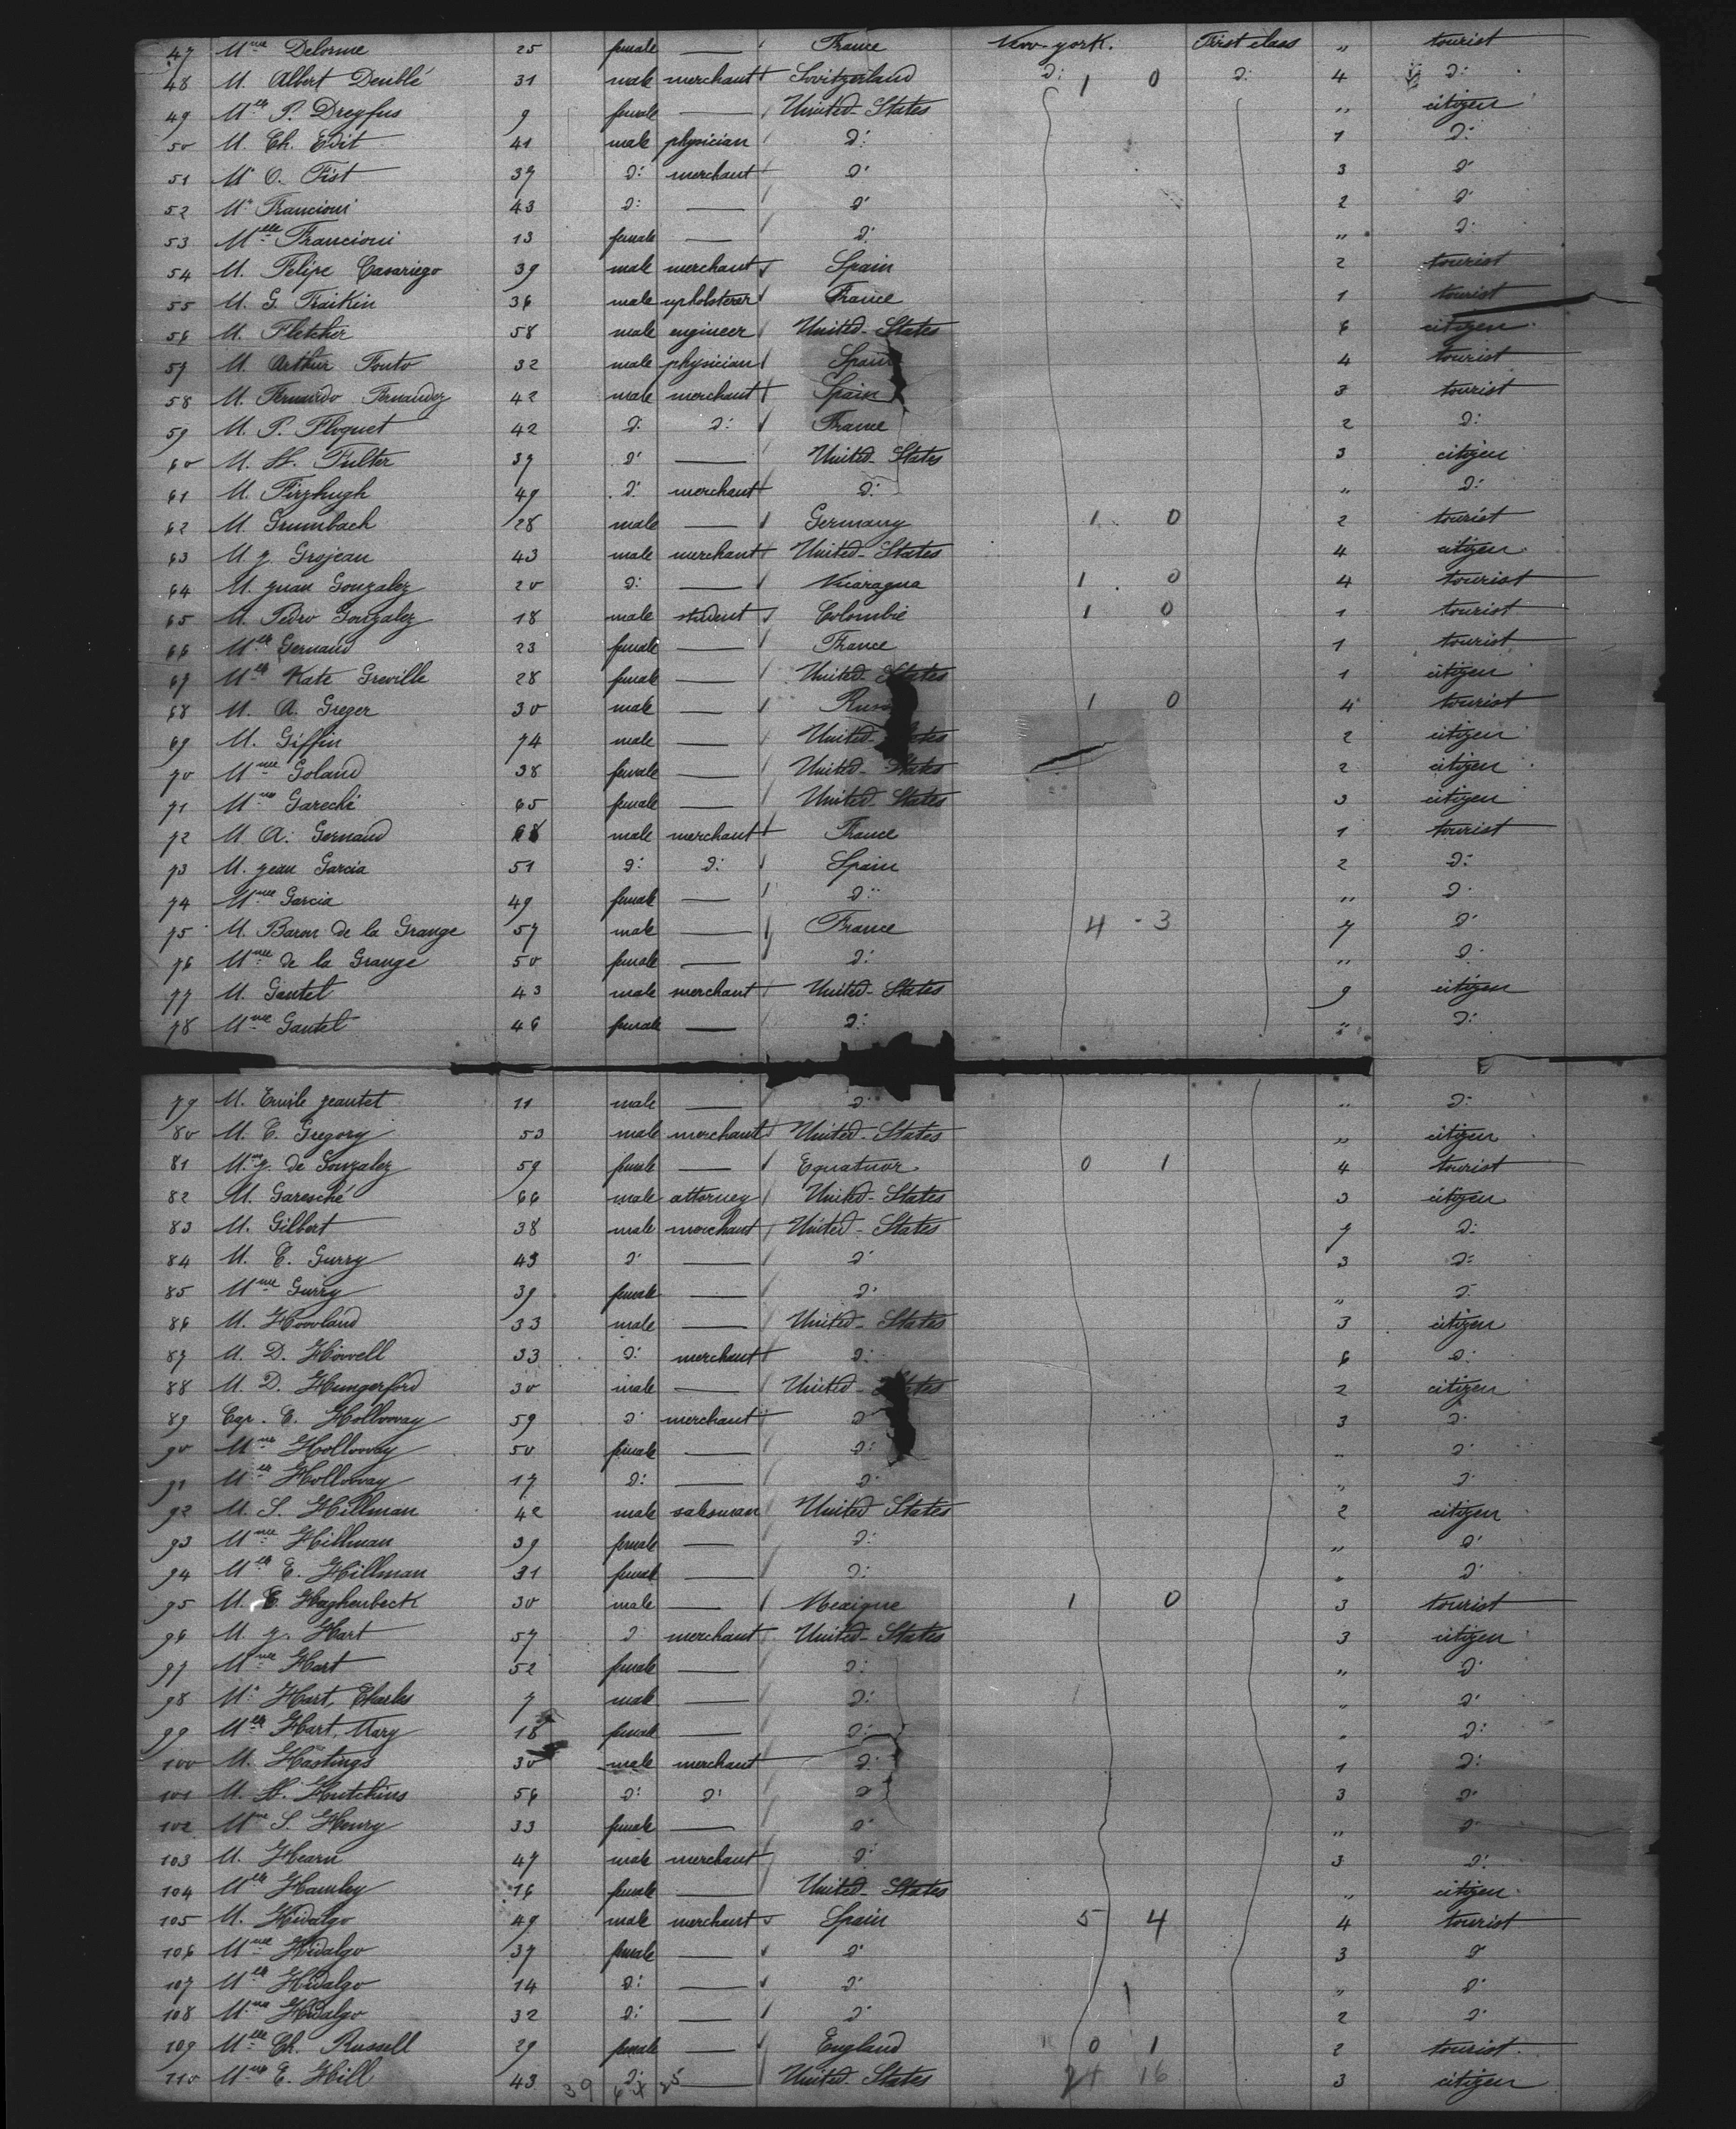 47 Mme Delorme 25 female — France New-york. First class " tourist
48 M. Albert Deublé 31 male merchant Switzerland d: 1 0 d: 4 d:
49 Mlle P. Dreyfus 9 female — United-States " citizen
50 M. Ch. Edit 41 male physician d: 1 d:
51 Mr O. Fist 37 d: merchant d: 3 d:
52 Mr Francioni 43 d: — d: 2 d:
53 Melle Francioni 13 female — d: " d:
54 M. Felipe Casariego 39 male merchant Spain 2 tourist
55 M. G. Fraikin 36 male upholsterer France 1 tourist
56 M. Fletcher 58 male engineer United-States 6 citizen
57 M. Arthur Fouto 32 male physician Spain 4 tourist
58 M. Fernando Fernandez 42 male merchant Spain 3 tourist
59 M. P. Floquet 42 d: d: France 2 d:
60 M. H. Fulter 37 d: — United-States 3 citizen
61 M. Firzhugh 49 d: merchant d: " d:
62 M Grumbach 28 male — Germany 1 0 2 tourist
63 M. J. Grojean 43 male merchant United-States 4 citizen
64 M. Juan Gonzalez 20 d: — Nicaragua 1 0 4 tourist
65 M. Pedro Gonzalez 18 male student Colombie 1 0 1 tourist
66 Mlle Gernaud 23 female — France 1 tourist
67 Mlle Kate Greville 28 female — United-States 1 citizen
68 M. A. Greger 30 male — 1 0 4 tourist
69 M. Giffin 74 male — United-States 2 citizen
70 Mme Goland 38 female — United-States 2 citizen
71 Mme Gareché 65 female — United-States 3 citizen
72 M. A. Gernaud 68 male merchant France 1 tourist
73 M. Jean Garcia 51 d: d: Spain 2 d:
74 Mme Garcia 49 female — d: " d:
75 M. Baron de la Grange 57 male — France 4 - 3 7 d:
76 Mme de la Grange 50 female — d: " d:
77 M. Gautel 43 male merchant United-States 9 citizen
78 Mme Gautel 46 female — d: " d:
79 M. Emile Jeautet 11 male — d: " d:
80 M. E. Gregory 53 male merchant United-States " citizen
81 Mme J. de Gonzalez 59 female — Equatuor 0 1 4 tourist
82 M. Garesché 66 male attorney United-States 3 citizen
83 M. Gilbert 38 male merchant United-States 7 d:
84 M. E. Gurry 43 d: — d: 3 d:
85 Mme Gurry 39 female — d: " d:
86 M. Howland 33 male — United-States 3 citizen
87 M. D. Howell 33 d: merchant d: 6 d:
88 M. D. Hungerford 30 male — United-States 2 citizen
89 Cap. E. Holloway 59 d: merchant d: 3 d:
90 Mme Holloway 50 female — d: " d:
91 Mlle Holloway 17 d: — d: " d:
92 M. S. Hillman 42 male salesman United States 2 citizen
93 Mme Hillman 39 female — d: " d:
94 Mlle E. Hillman 31 female — d: " d:
95 M. E. Haghenbeck 30 male — Mexique 1 0 3 tourist
96 M. J. Hart 57 d: merchant United-States 3 citizen
97 Mme Hart 52 female — d: " d:
98 Mr Hart, Charles 7 male — d: " d:
99 Mlle Hart, Mary 18 female — d: " d:
100 M. Hastings 30 male merchant d: 1 d:
101 M. H. Hutchins 56 d: d: d: 3 d:
102 Mme S. Henry 33 female — d: " d:
103 M. Hearn 47 male merchant d: 3 d:
104 Mlle Hamley 16 female — United-States " citizen
105 M. Hidalgo 49 male merchant Spain 5 4 4 tourist
106 Mme Hidalgo 37 female — d: 3 d:
107 Mlle Hidalgo 14 d: — d: " d:
108 Mme Hidalgo 32 d: — d: 2 d:
109 Melle Ch. Russell 29 female — England 0 1 2 tourist
110 Mme E. Hill 43 d: — United-States 3 citizen
39 64 25 24 16